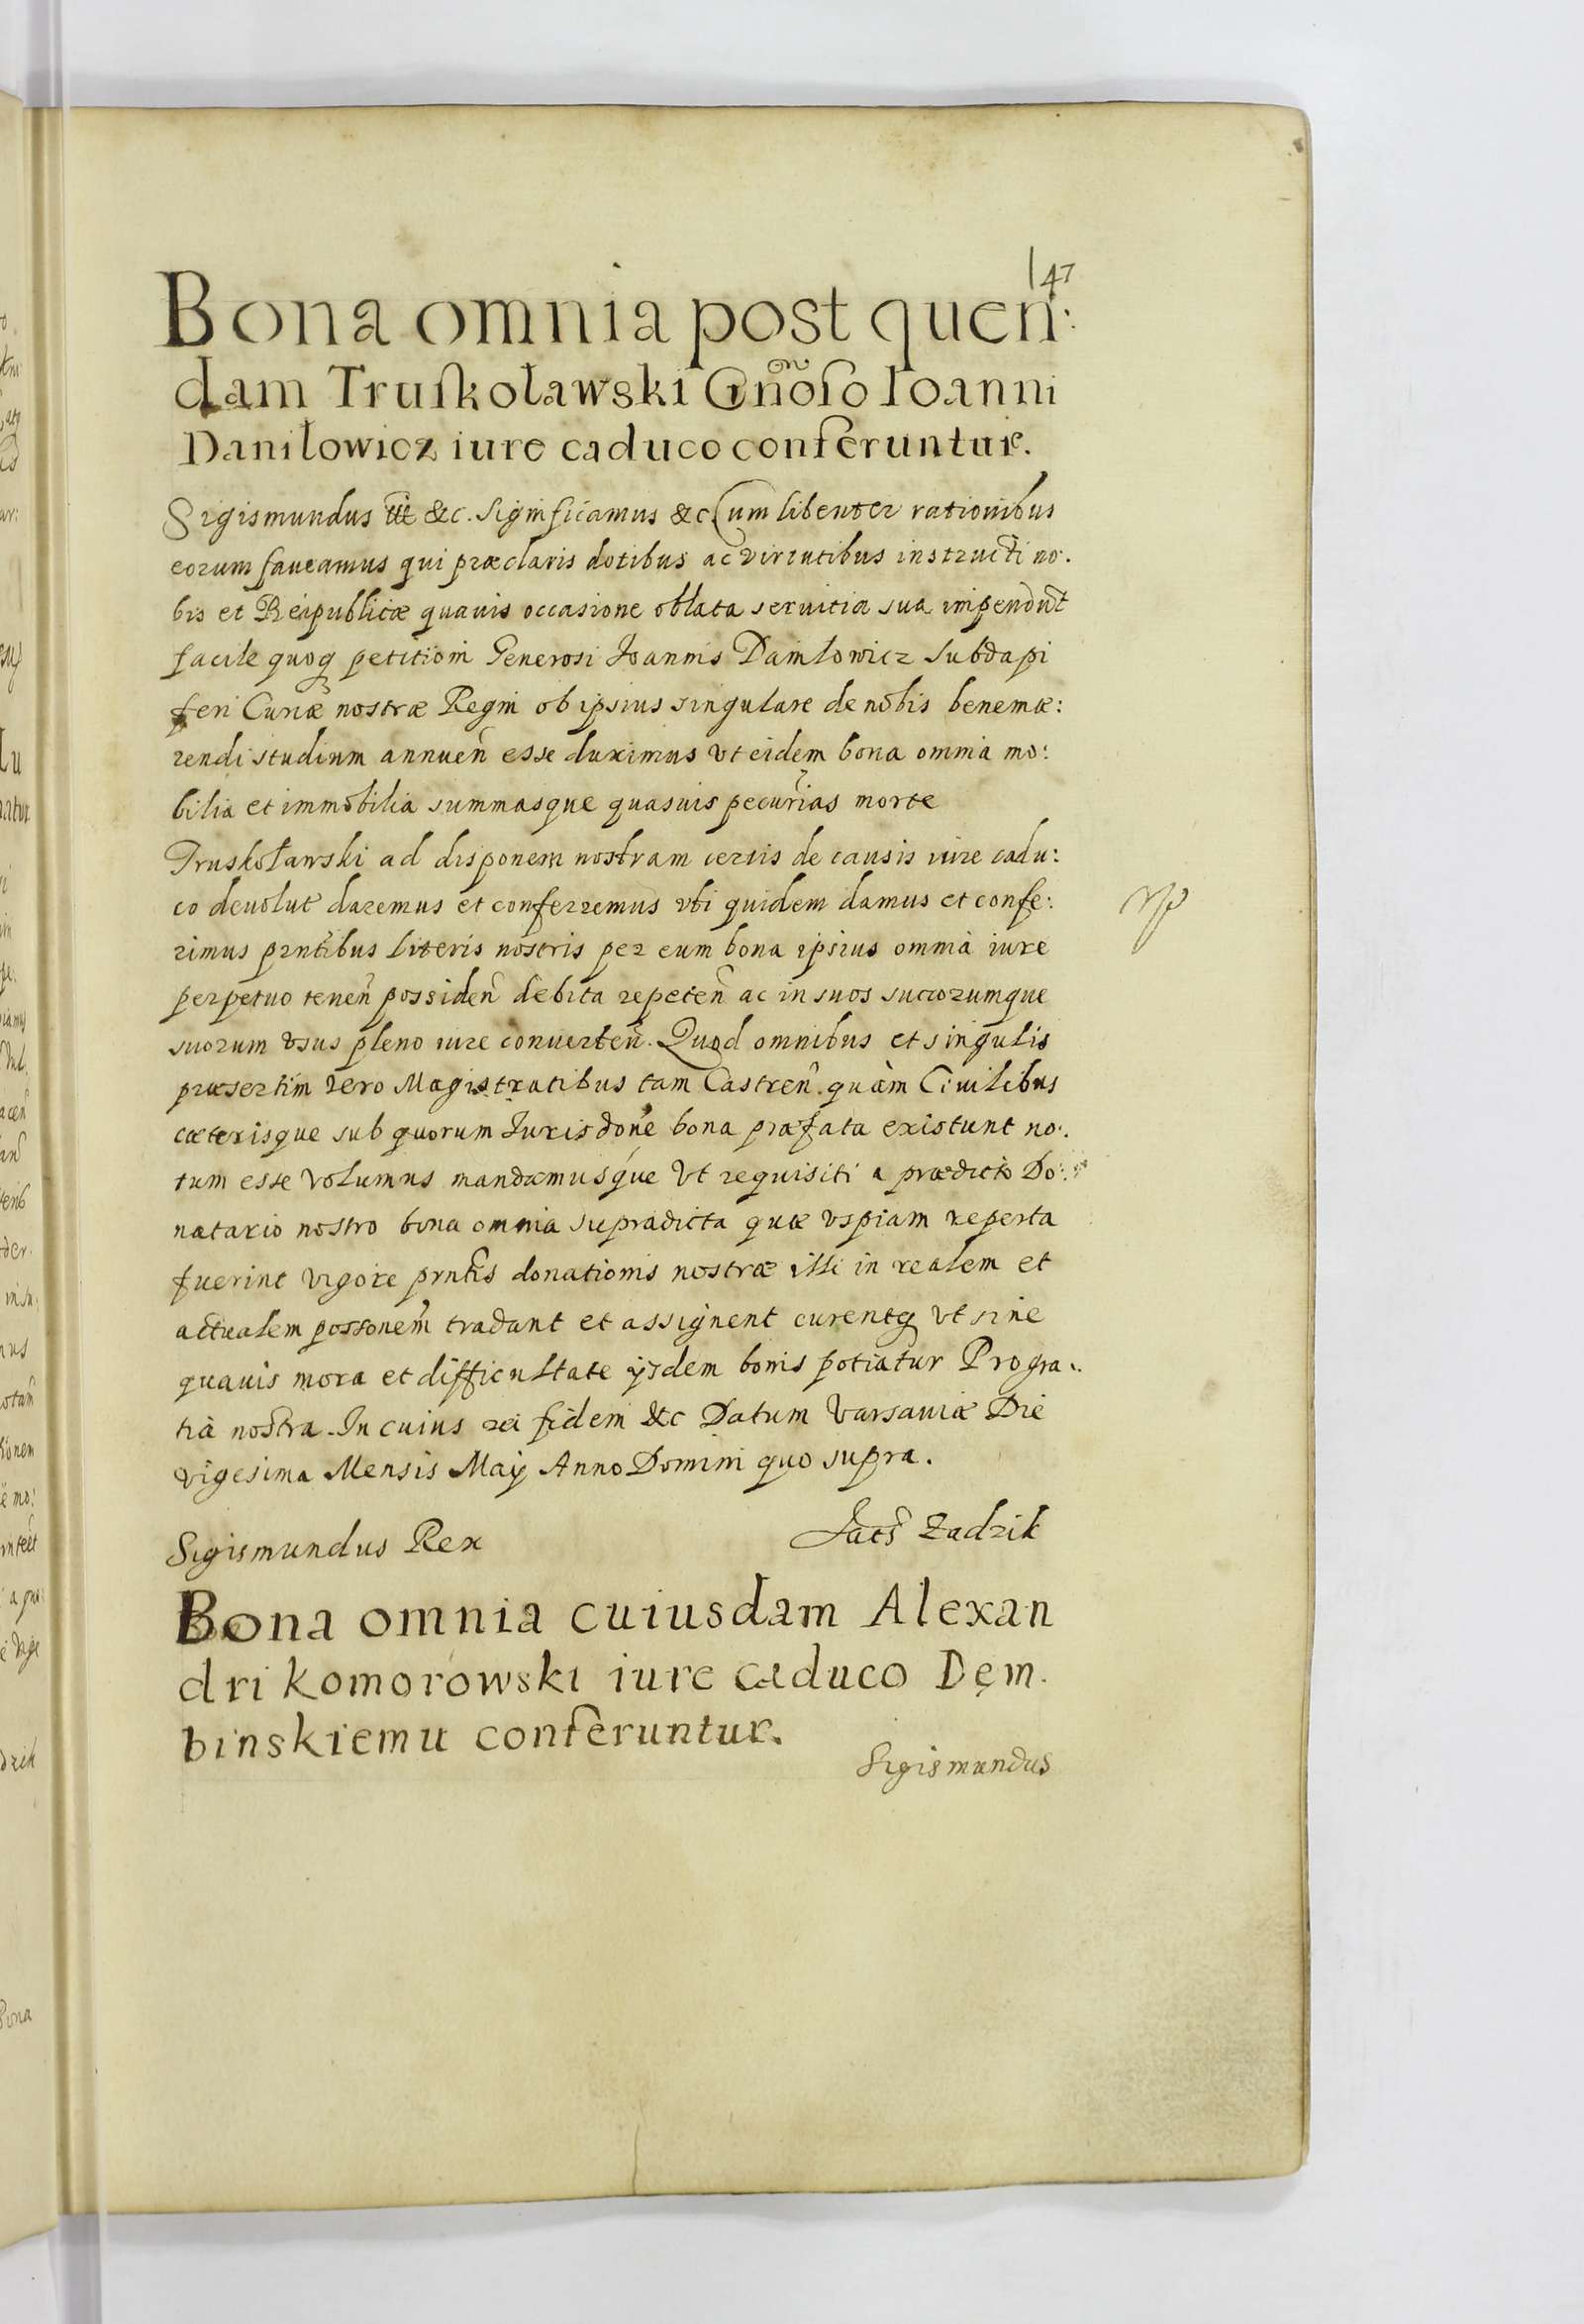 47
Bona omnia post quen:
dam Truſkoławski Gn̄oſo Ioanni
Daniłowicz iure caduco conferuntur.
Sigismundus iii &c. Significamus &c Cum libenter rationibus
eorum faveamus qui præclaris dotibus ac virtutibus instructi no:
bis et Reipublicæ quavis occasione oblata servitia sua impendũt
facile quoq petitioni Generosi Ioannis Daniłowicz Subdapi
feri Curiæ nostræ Regni ob ipsius singulare de nobis benemæ:
rendi studium annuen̄ esse duximus vt eidem bona omnia mo:
bilia et immobilia summasque quasuis pecun̄ias morte
Truskoławski ad disponem nostram certis de causis iure cadu:
co devolut daremus et conferremus vti quidem damus et confe:
rimus prn̄tibus literis nostris per eum bona ipsius omnia iure
perpetuo tenen̄ possiden̄ debita repeten̄ ac in suos succorumque
suorum vsus pleno iure converten̄. Quod omnibus et singulis
præsertim vero Magistratibus tam Castren̄. quàm Civilibus
cæterisque sub quorum Iurisdone bona præfata existunt no:
tum esse volumus mandamusque Vt requisiti a prædicto Do:
natario nostro bona omnia supradicta quæ vspiam reperta
fuerint vigore prn̄tis donationis nostræ illi in realem et
actualem possonem tradant et assignent curentq vt sine
quavis mora et difficultate ijsdem bonis potiatur Pro gra:
tia nostra. In cuius rei fidem &c Datum Varsaviæ Die
vigesima Mensis Maij Anno Domini quo supra.
Sigismundus Rex Iacs Zadzik
Bona omnia cuiusdam Alexan
dri Komorowski iure caduco Dęm.
binskiemu conferuntur.
Sigismundus